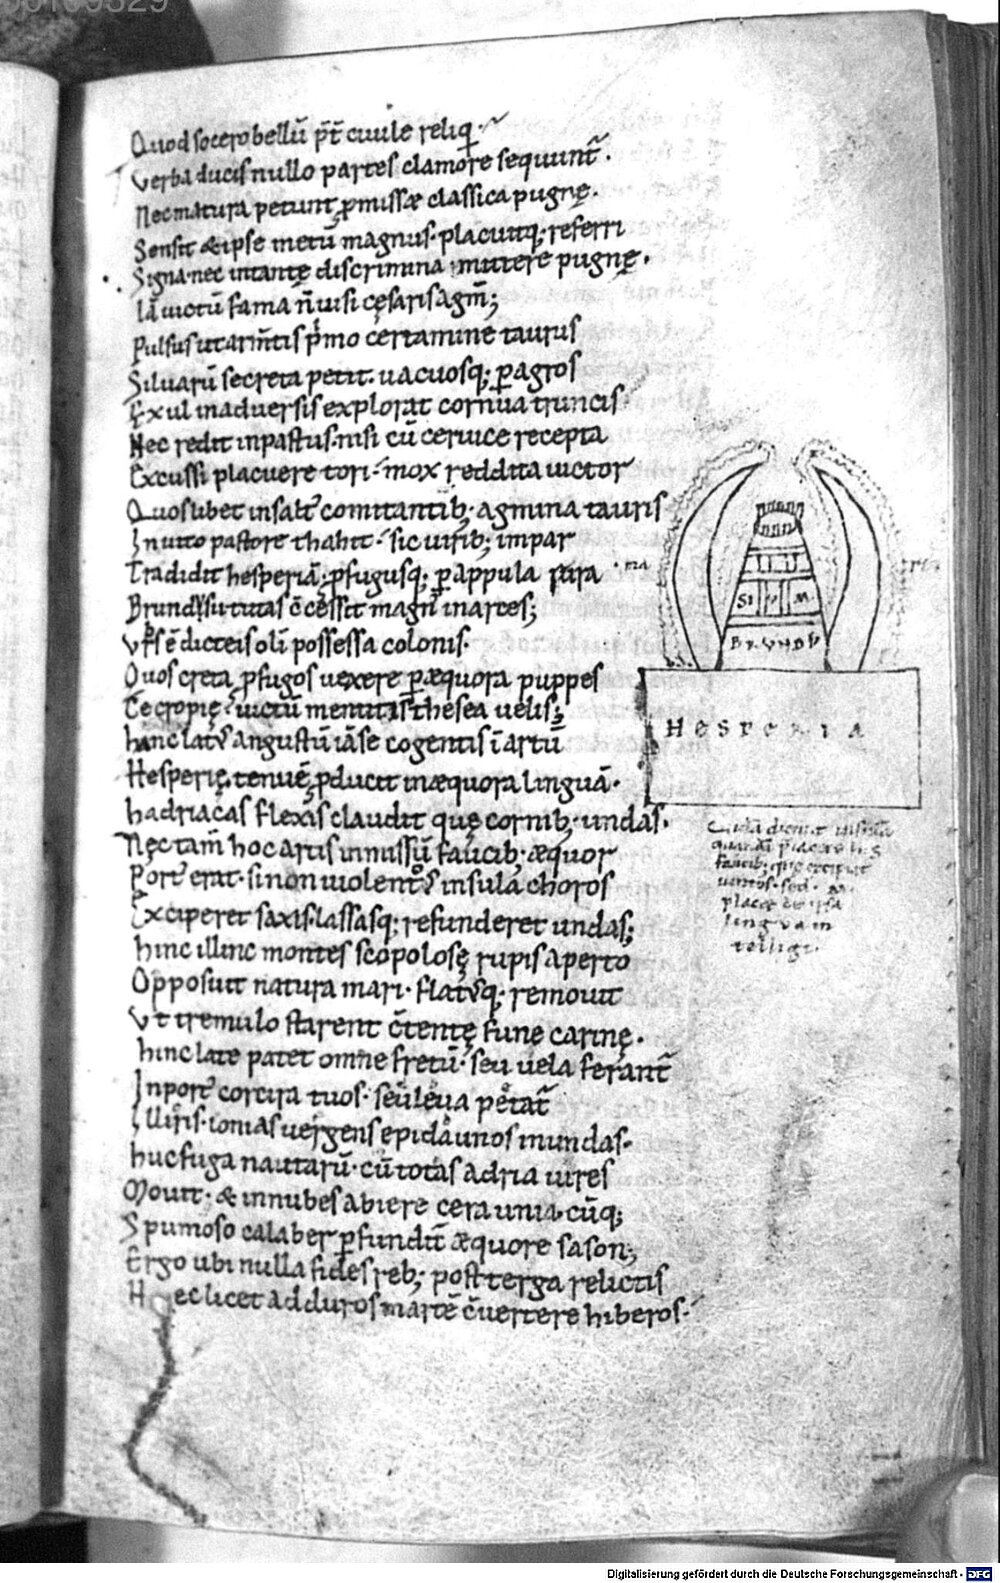 Quod socero bellū p̄t̄ ciuile reliqͥ.
Verba ducis nullo partes clamore sequunt̄.
Nec matura petunt ꝓmissæ classica pugnę.
Sensit & ipse metū magnus. placuitq; referri
Signa. nec intantę discrimina mittere pugnę.
Iā uictū fama n̄ uisi cęsaris agm̄;
Pulsus ut arm̄tis pͥmo certamine taurus
Siluarū secreta petit. uacuosq; ꝑ agros
Exul in aduersis explorat cornua truncis
Nec redit in pastus. nisi cū ceruice recepta
Excussi placuere tori. mox reddita uictor
Quoslibet in salt' comitantib; agmina tauris
Inuito pastore thahit. sic uirib; impar
Tradidit hesperiā; ꝓfugusq; ꝑ appula rura
Brundisii tutas c̄cessit magn' in arces;
Vrƀs ē dicteis olī possessa colonis.
Quos creta ꝓfugos uexere ꝑ æquora puppes
Cecropię. uictū mentitis thesea uelis;
hanc lat' angustū iā se cogentis ī artū
Hesperię. tenuē ꝓducit in æquora linguā.
hadriacas flexis claudit quę cornib; undas.
Nec tam̄ hoc artis inmissū faucib; æquor
Port' erat. si non uiolentos insula choros
Exciperet saxis. lassasq; refunderet undas;
hinc illinc montes scopolosę rupis aperto
Opposuit natura mari. flat'q; remouit
Vt tremulo starent c̄tentę fune carinę.
hinc late patet omne fretū. seu uela ferant̄
In port' corcira tuos. seu leua petat̄
Illiris. ionias uergens epidaunos in undas.
huc fuga nautarū. cū totas adria uires
Mouit. & in nubes abiere ceraunia. cūq;
Spumoso calaber ꝑfundit̄ æquore sason;
Ergo ubi nulla fides reb; post terga relictis
Hec licet ad duros martē c̄uertere hiberos.
SI U M
BRUNDU
HESPERIA
Quidā dicunt insulā
faucib; que excipit
uentos. sed
lingvam